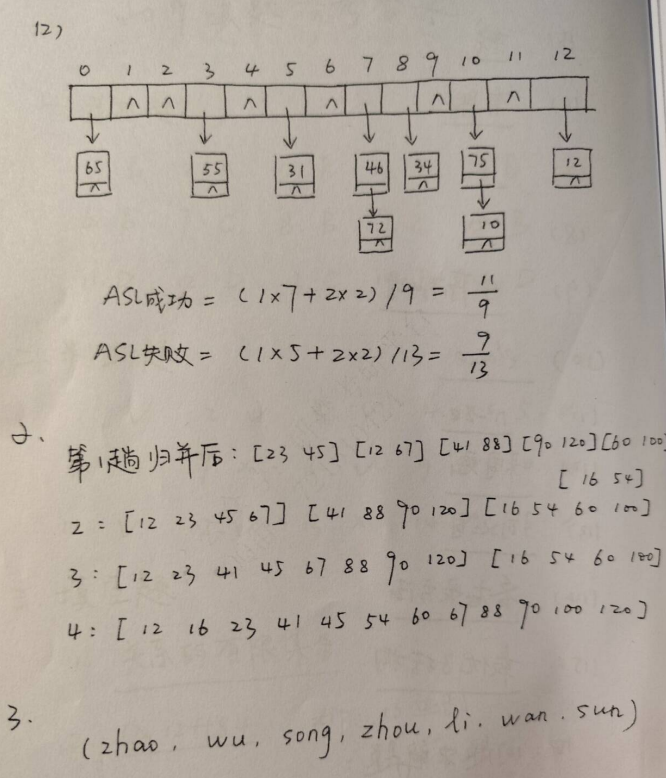 (2)
0 1 2 3 4 5 6 7 8 9 10 11 12
∧ ∧ ∧ ∧ ∧ ∧
65 55 31 46 34 75 12
∧ ∧ ∧ ∧ ∧
72 10
∧ ∧
ASL成功 = (1×7+2×2)/9 = 11/9
ASL失败 = (1×5+2×2)/13 = 9/13
2.
第1趟归并后: [23 45] [12 67] [41 88] [90 120] [60 100]
[16 54]
2: [12 23 45 67] [41 88 90 120] [16 54 60 100]
3: [12 23 41 45 67 88 90 120] [16 54 60 100]
4: [12 16 23 41 45 54 60 67 88 90 100 120]
3.
(zhao, wu, song, zhou, li. wan. sun)